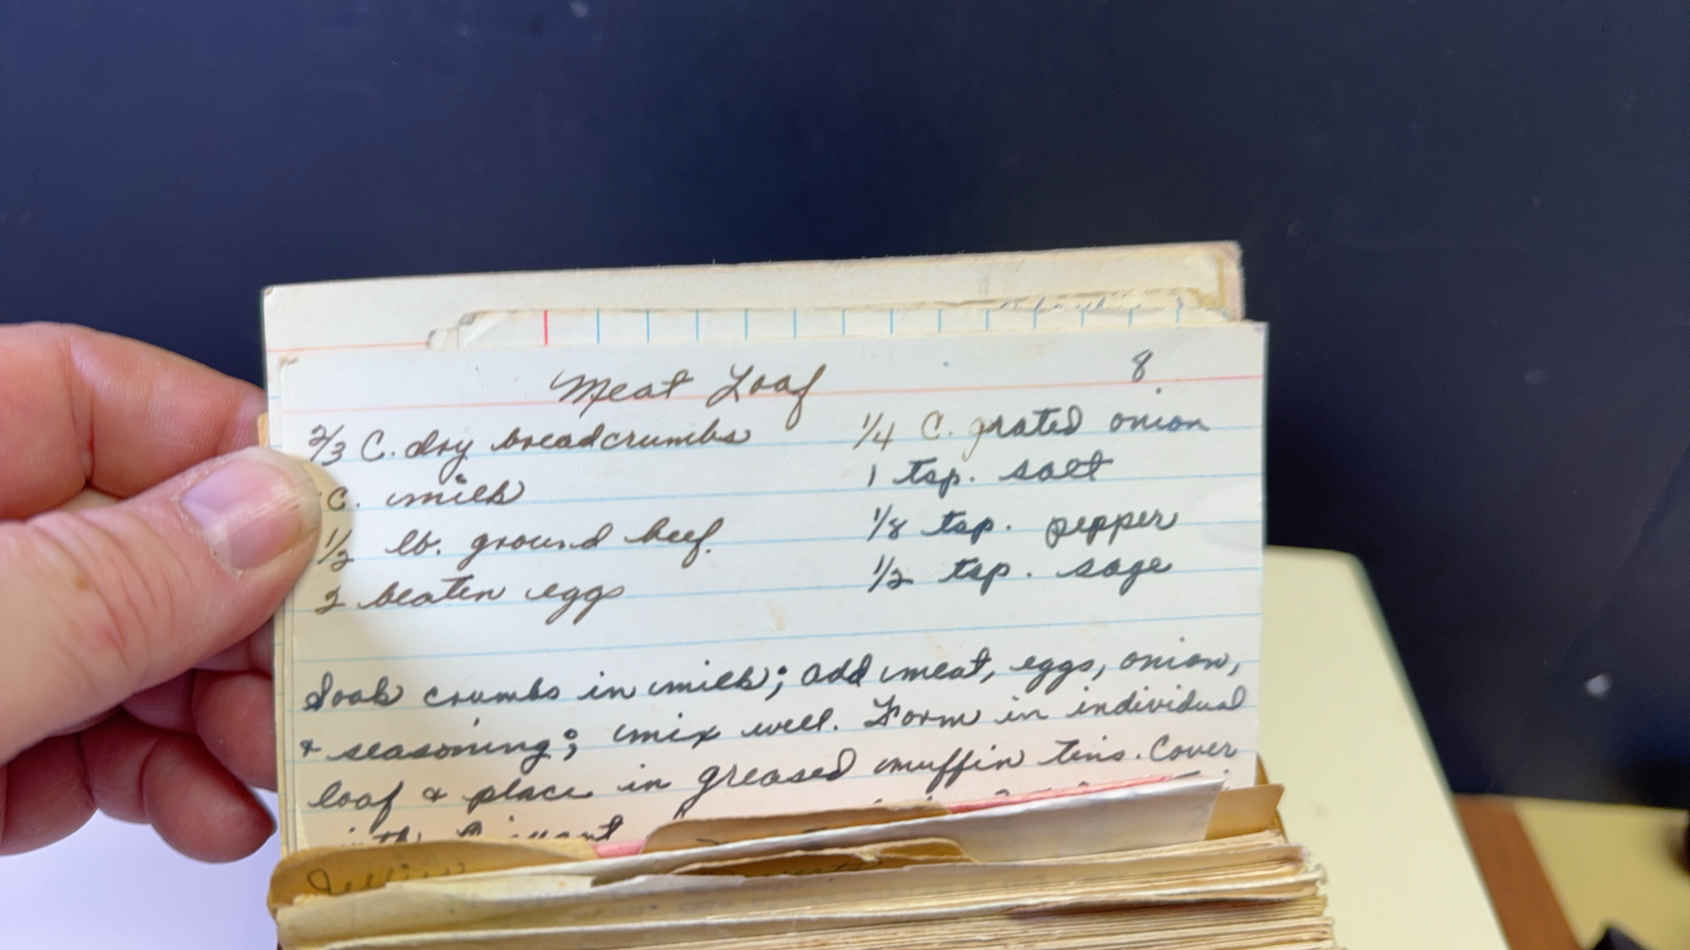 Meat Loaf 8
2/3 C. dry breadcrumbs
C. milk
1/2 lb. ground beef
2 beaten eggs
1/4 C. grated onion
1 tsp. salt
1/8 tsp. pepper
1/2 tsp. sage
Soak crumbs in milk; add meat, eggs, onion,
& seasoning; mix well. Form in individual
loaf & place in greased muffin tins. Cover
with